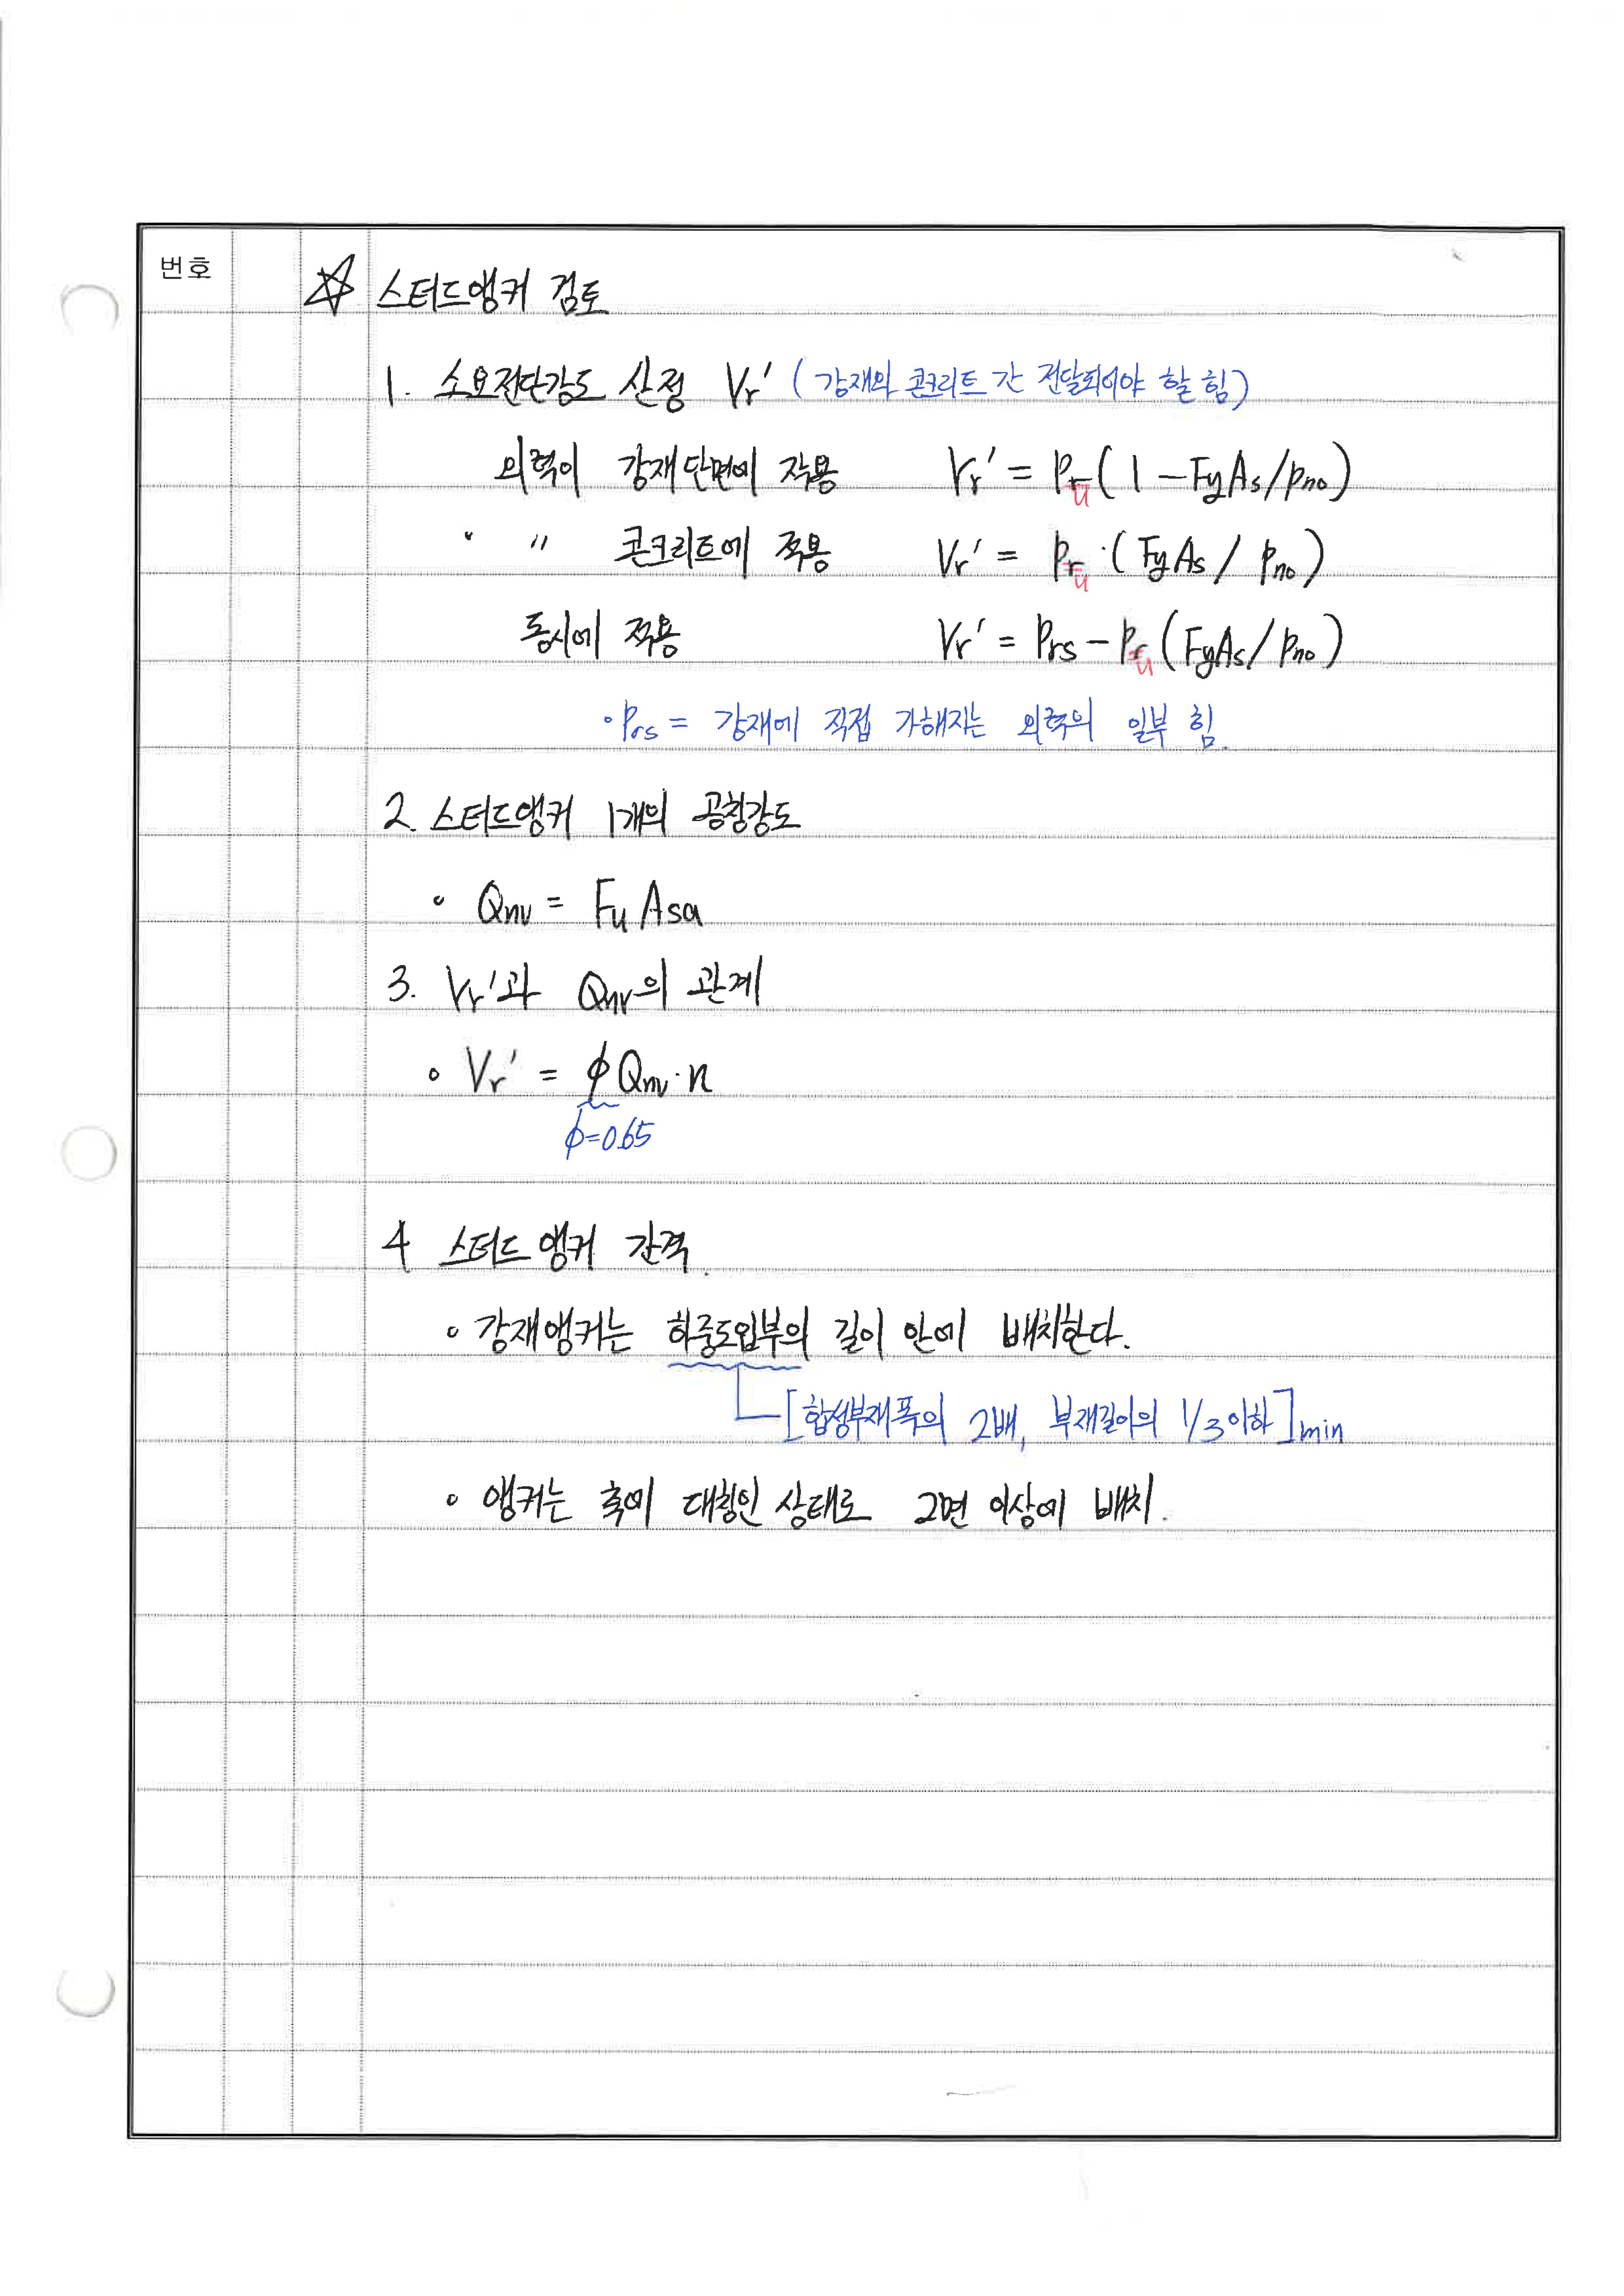 번호
☆ 스터드앵커 검토
1. 소요전단강도 산정 Vr' (강재와 콘크리트 간 전달되어야 할 힘)
외력이 강재단면에 작용 Vr' = Pu(1 - FyAs/Pno)
" 콘크리트에 작용 Vr' = Pu·(FyAs / Pno)
동시에 작용 Vr' = Prs - Pu(FyAs/Pno)
• Prs = 강재에 직접 가해지는 외력의 일부 힘.
2. 스터드앵커 1개의 공칭강도
• Qnv = Fu Asa
3. Vr'과 Qnv의 관계
• Vr' = ϕQnv·n
ϕ=0.65
4 스터드 앵커 간격.
• 강재앵커는 하중도입부의 길이 안에 배치한다.
[합성부재폭의 2배, 부재길이의 1/3이하]min
• 앵커는 축에 대칭인 상태로 2면 이상에 배치.